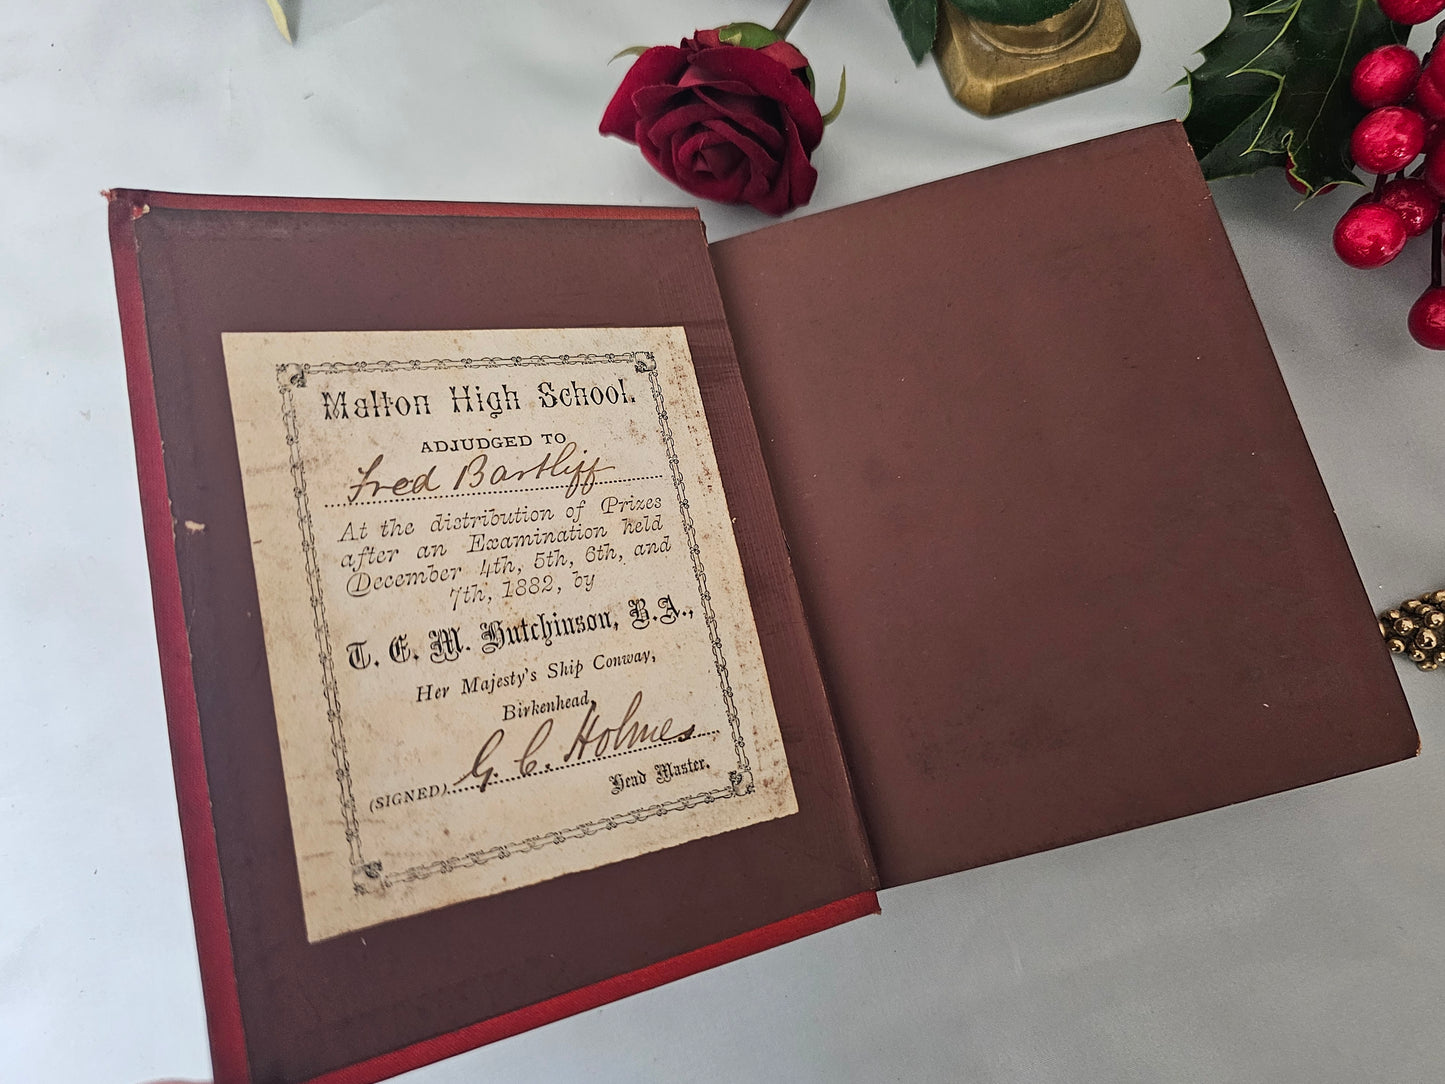 Malton High School.
ADJUDGED TO
Fred Bartliff
At the distribution of Prizes
after an Examination held
December 4th, 5th, 6th, and
7th, 1882, by
T. E. M. Hutchinson, B.A.,
Her Majesty's Ship Conway,
Birkenhead,
(SIGNED) G. C. Holmes
Head Master.